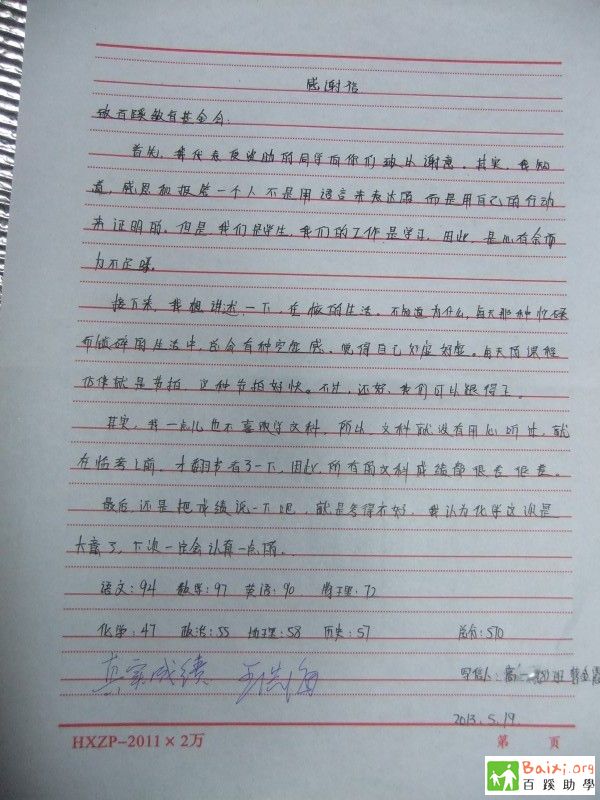 感谢信
致百蹊教育基金会:
首先,我代表受资助的同学向你们致以谢意。其实,我知
道,感恩和报答一个人不是用语言来表达的而是用自己的行动
来证明的。但是,我们是学生,我们的工作是学习。因此,是心有余而
力不足呀。
接下来,我想讲述一下,在校的生活。不知道为什么,每天那种忙碌
而琐碎的生活中,总会有种空虚感。觉得自己好空好空。每天的课程
仿佛就是节拍,这种节拍好快。不过,还好,我们可以跟得上。
其实,我一点儿也不喜欢学文科。所以,文科就没有用心听过,就
在临考之前,才翻书看了一下,因此,所有的文科成绩都很差很差。
最后,还是把成绩说一下吧,就是考得不好,我认为化学这次是
大意了,下次一定会认真一点的。
语文:94 数学:97 英语:90 物理:72
化学:47 政治:55 地理:58 历史:57 总分:570
真实成绩
写信人:高一 班
2013.5.19.
HXZP-2011×2万 第 页
Baixi.org
百蹊助學